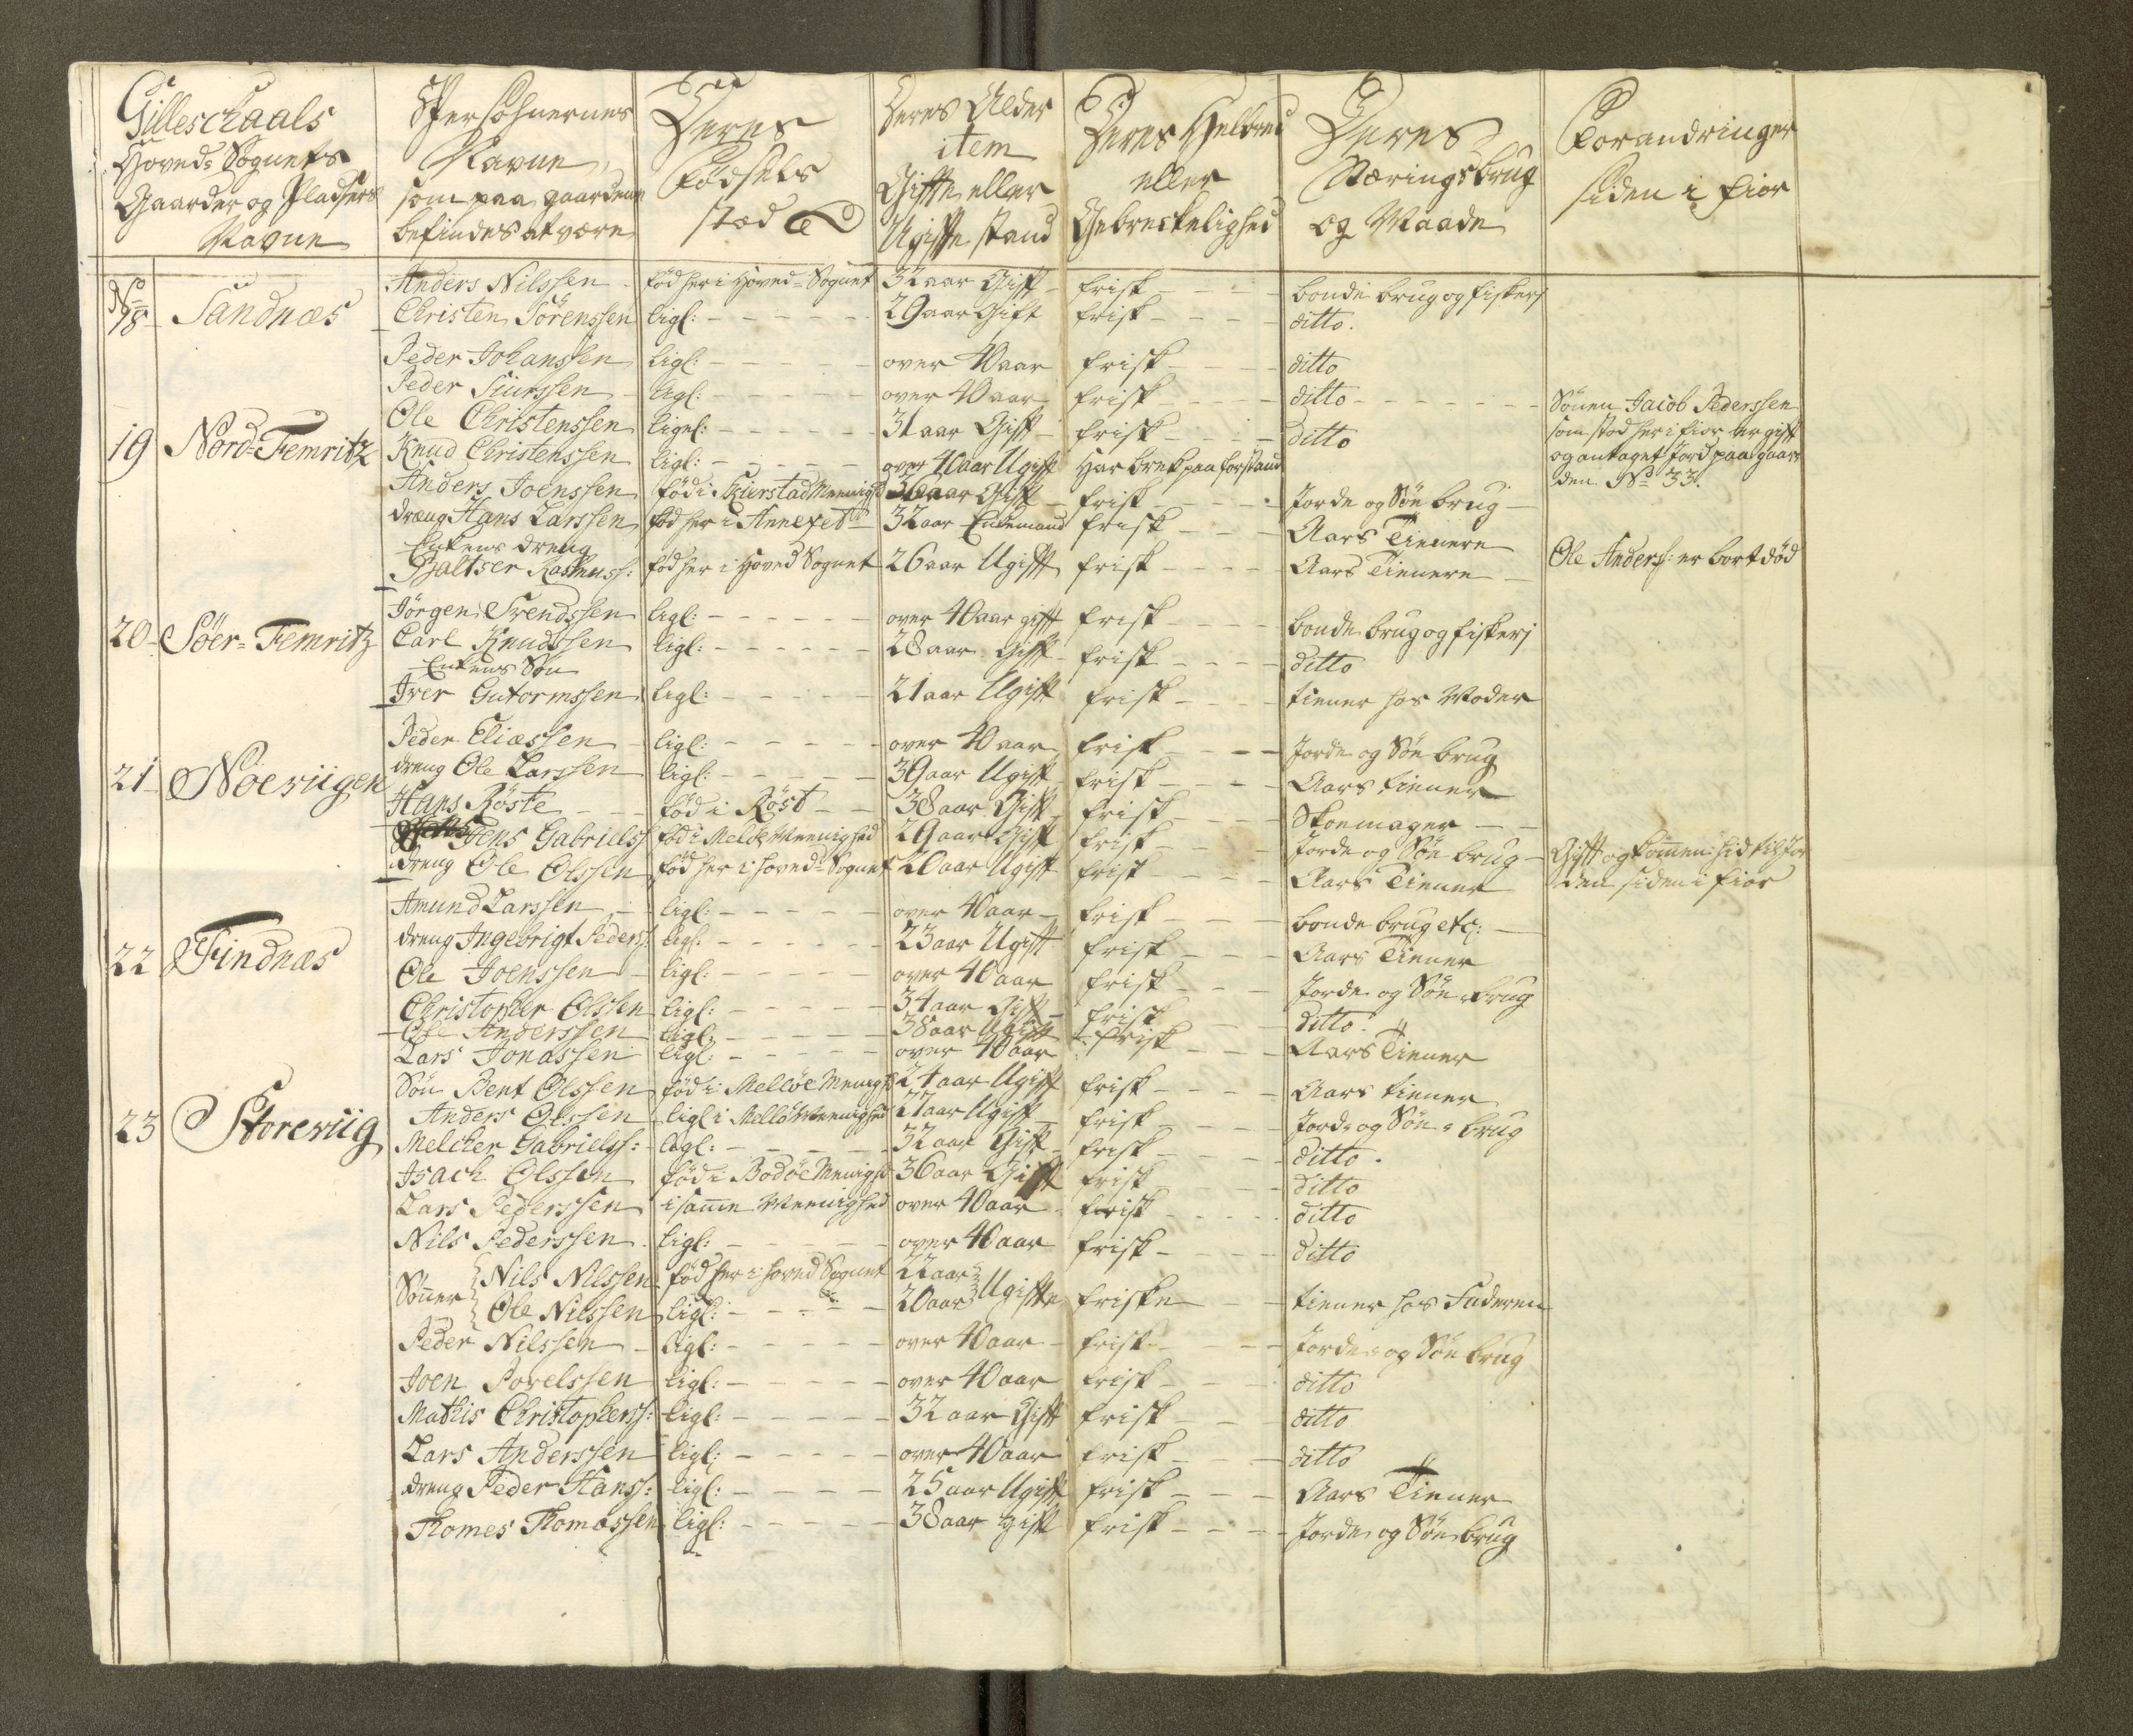 Gilleschaals Hoved-Sognets Gaarder og Pladsers Navne
Persohnernes Navne, som paa gaardene befindes at være
Deres Fødsels stæd
Deres Alder item Gifte eller Ugifte stand
Deres Helbred eller Gebreckelighed
Deres Næringsbrug og Maade
Forandringer siden i fior
No 18 Sandnæs
Anders Nilssen fød her i Hoved-Sognet 32 aar Gift frisk bonde brug og fiskerj
Christen Sörenssen ligl: 29 aar Gift frisk ditto.
Peder Johanssen ligl: over 40 aar frisk ditto
19 Nord-Femritz
Peder Siurssen ligl: over 40 aar frisk ditto Sönen Jacob Pederssen
Ole Christenssen ligel: 31 aar Gift frisk ditto som stod her i fior er gift
Knud Christenssen ligl: over 40 aar Ugift Har brek paa forstand og antaget Jord paa gaar-
Anders Joenssen fød i Menigh 36 aar Gift frisk Jorde og Söe brug den No 33.
dreng Hans Larssen fød her i Annexet 32 aar Enkemand frisk Aars Tienere
Enkens dreng
Baltser Rasmuss: fød her i Hoved Sognet 26 aar Ugift frisk Aars Tienere Ole Anderss: er bortdød
20 Söer-Femritz
Jörgen Trendssen ligl: over 40 aar gift frisk bonde brug og fiskerj
Carl Knudssen ligl: 28 aar Gift frisk ditto
Enkens Sön
Iver Gutormssen ligl: 21 aar Ugift frisk tiener hos Moder
21 Nöeviigen
Peder Eliæssen ligl: over 40 aar frisk Jorde og Söe brug
dreng Ole Larssen ligl: 39 aar Ugift frisk Aars tiener
Hans Röste fød i Röst 38 aar Gift frisk Skoemager
Jens Gabrielss fød i Meløe Menighed 29 aar Gift frisk Jorde og Söe brug Gift og kommen hid til Jor
dreng Ole Olssen fød her i hoved-Sognet 20 aar Ugift frisk Aars Tiener den siden i fior
22 Findnæs
Amund Larssen ligl: over 40 aar frisk bonde brug etc:
dreng Ingebrigt Peders: ligl: 23 aar Ugift frisk Aars Tiener
Ole Joenssen ligl: over 40 aar frisk Jorde og Söe brug
Christopher Olssen ligl: 34 aar Gift frisk ditto.
Ole Anderssen ligl: 38 aar Ugift frisk Aars Tiener
23 Storeviig
Lars Jonassen ligl: over 40 aar
Sön Bent Olssen fød i Mellöe Menigh 24 aar Ugift frisk Aars tiener
Anders Olssen ligl i Mellö Menighed 27 aar Ugift frisk Jord- og Söe-brug
Melcher Gabrielss: ligl: 32 aar Gift frisk ditto.
Isach Olssen fød i Bodöe Menigh 36 aar Gift frisk ditto
Lars Pederssen i samme Menighed over 40 aar frisk ditto
Nils Pederssen ligl: over 40 aar frisk ditto
Sönner Nils Nilssen fød her i hoved Sognet 22 aar Ugifte
Ole Nilssen ligl: 20 aar friske tiener hos Faderen
Peder Nilssen ligl: over 40 aar frisk Jorde- og Söe brug
Joen Povelssen ligl: over 40 aar frisk ditto
Mathis Christopherss: ligl: 32 aar Gift frisk ditto
Lars Anderssen ligl: over 40 aar frisk ditto
dreng Peder Hanss: ligl: 25 aar Ugift frisk Aars Tiener
Thomes Thomassen ligl: 38 aar gift frisk Jorde og Söe brug